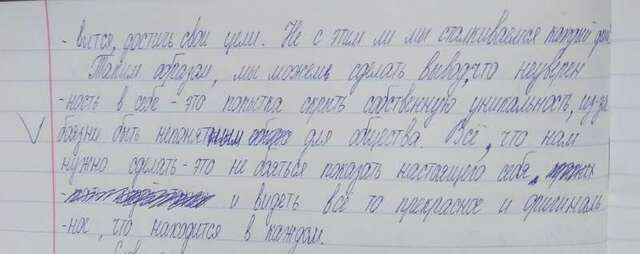 - вится, достичь свои цели. Не с этим ли мы сталкиваемся каждый день
Таким образом, мы можем сделать вывод, что неуверен
-ность в себе - это попытка скрыть собственную уникальность, из-за
боязни быть непонятным для общества. Всё, что нам
нужно сделать - это не бояться показать настоящего себя,
и видеть всё то прекрасное и оригиналь
-ное, что находится в каждом.